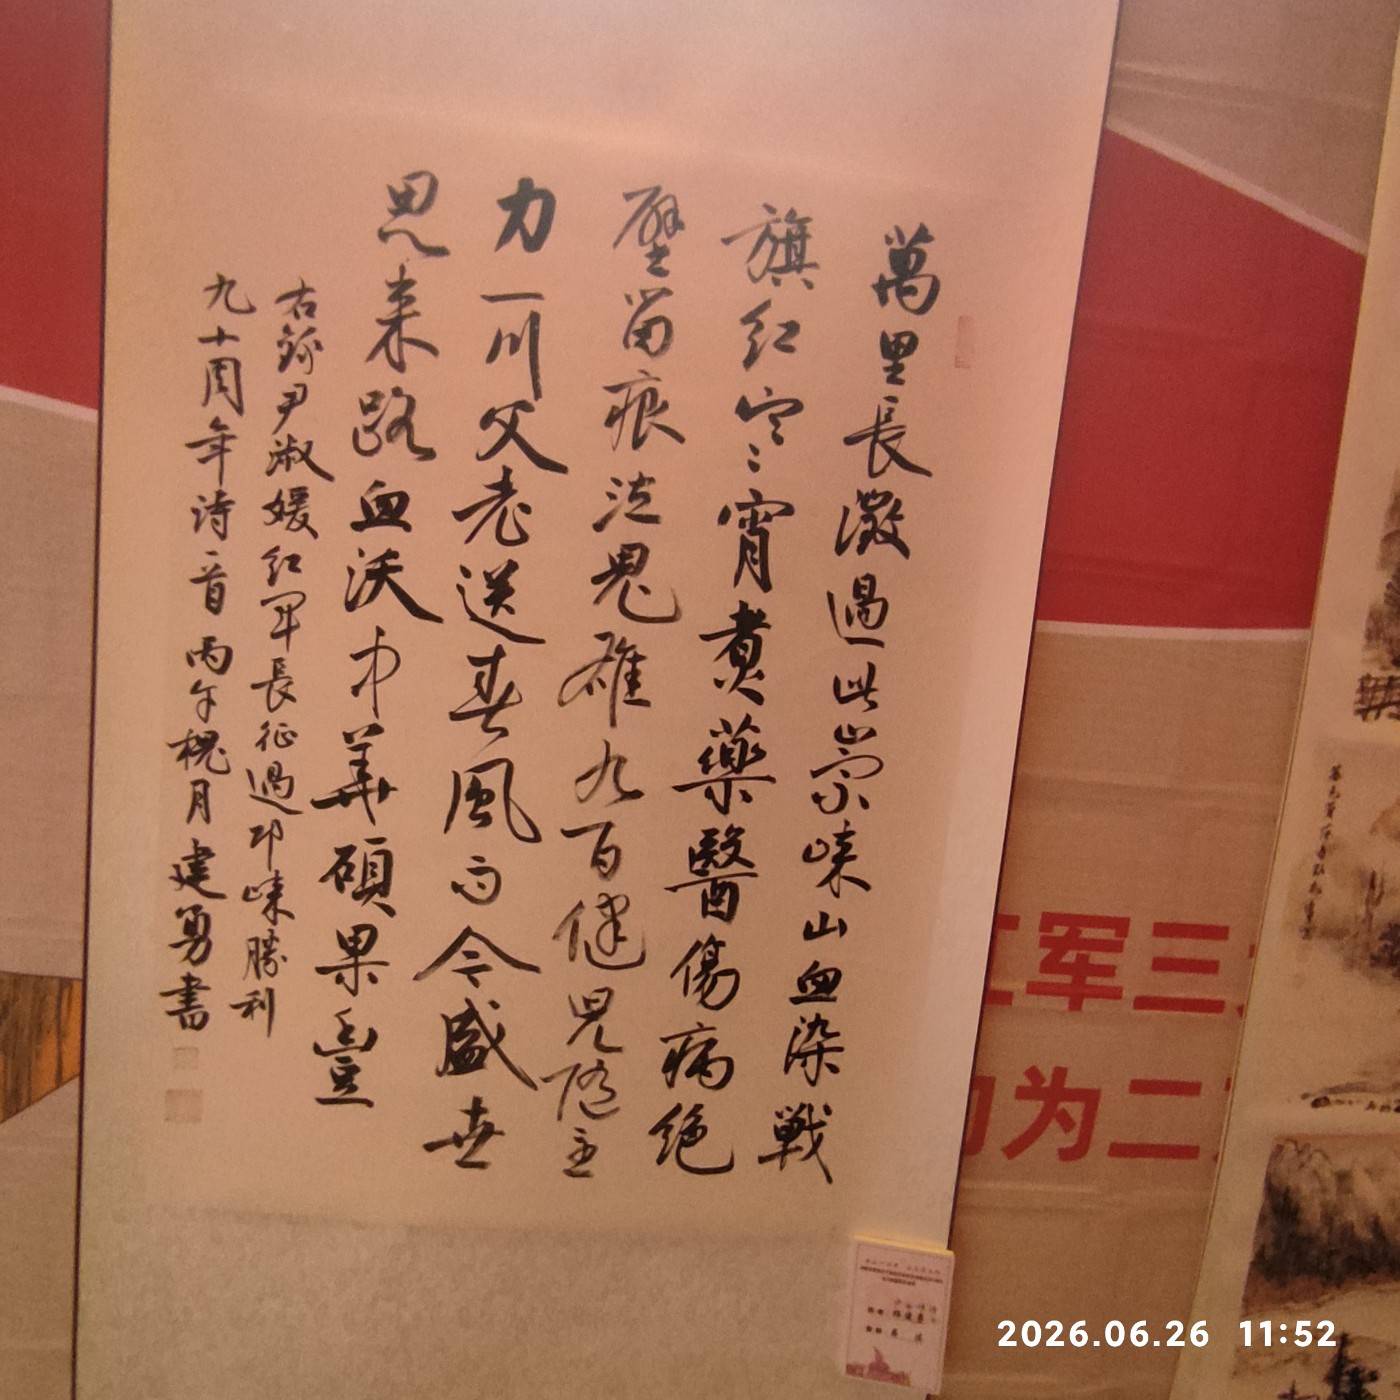 萬里長激過此崇崃山血染戰
旗紅空〻宵煮藥醫傷病絕
壁留痕泣鬼雄九百健兒隨主
力一川父老送春風而今盛世
思来路血沃中華碩果豐
右錄尹淑媛紅軍長征過邛崍勝利
九十周年诗一首丙午槐月建勇書
军三
为二
2026.06.26 11:52